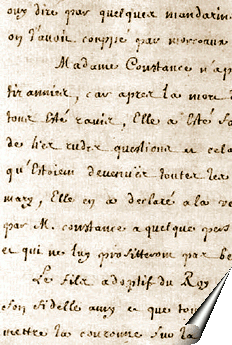 ouy dire par quelques mandarin
on l'avoit couppé par morceaux
Madame Constance n'a p
tir annier, car apres la mort
tous esté ravis, Elle a esté
de bien rudes questions et cela
qu'Estoient devenuës toutes les
mary, Elle en a declaré a la ve
par M. constance a quelque pers
et qui ne luy profitteront pas be
Le fils adoptif du Roy
son fidelle amy et que tou
mettre la couronne sur la